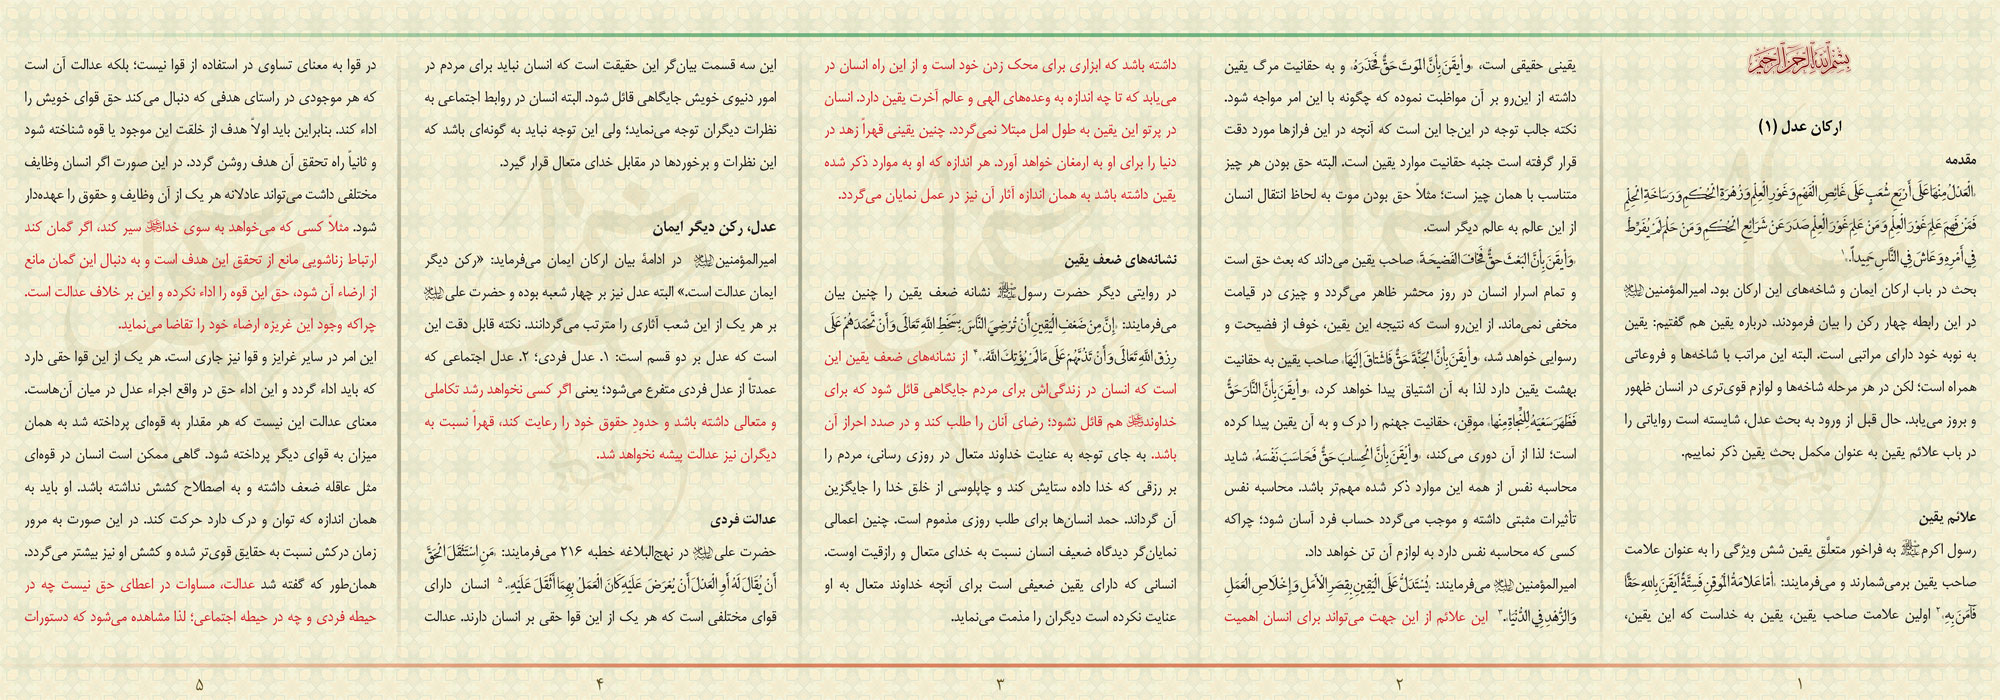 بِسْمِ اللهِ الرَّحْمنِ الرَّحِیمِ
ارکان عدل (۱)
مقدمه
«الْعَدْلُ مِنْهَا عَلَى أَرْبَعِ شُعَبٍ عَلَى غَائِصِ الْفَهْمِ وَ غَوْرِ الْعِلْمِ وَ زُهْرَةِ الْحُكْمِ وَ رَسَاخَةِ الْحِلْمِ
فَمَنْ فَهِمَ عَلِمَ غَوْرَ الْعِلْمِ وَ مَنْ عَلِمَ غَوْرَ الْعِلْمِ صَدَرَ عَنْ شَرَائِعِ الْحُكْمِ وَ مَنْ حَلُمَ لَمْ يُفَرِّطْ
فِي أَمْرِهِ وَ عَاشَ فِي النَّاسِ حَمِيداً.»۱
بحث در باب ارکان ایمان و شاخه‌های این ارکان بود. امیرالمؤمنین علیه‌السلام
در این رابطه چهار رکن را بیان فرمودند. درباره یقین هم گفتیم: یقین
به نوبه خود دارای مراتبی است. البته این مراتب با شاخه‌ها و فروعاتی
همراه است؛ لکن در هر مرحله شاخه‌ها و لوازم قوی‌تری در انسان ظهور
و بروز می‌یابد. حال قبل از ورود به بحث عدل، شایسته است روایاتی را
در باب علائم یقین به عنوان مکمل بحث یقین ذکر نماییم.
علائم یقین
رسول اکرم ﷺ به فراخور متعلَّق یقین شش ویژگی را به عنوان علامت
صاحب یقین برمی‌شمارند و می‌فرمایند: «أمّا عَلامَةُ المُوقِنِ فَسِتَّةٌ أيقَنَ بِاللهِ حَقّاً
فَآمَنَ بِهِ»،۲ اولین علامت صاحب یقین، یقین به خداست که این یقین،
۱
یقینی حقیقی است، «و أيقَنَ بِأنَّ المَوتَ حَقٌّ فَحَذِرَهُ» و به حقانیت مرگ یقین
داشته از این‌رو بر آن مواظبت نموده که چگونه با این امر مواجه شود.
نکته جالب توجه در این‌جا این است که آنچه در این فرازها مورد دقت
قرار گرفته است جنبه حقانیت موارد یقین است. البته حق بودن هر چیز
متناسب با همان چیز است؛ مثلاً حق بودن موت به لحاظ انتقال انسان
از این عالم به عالم دیگر است.
«وَ أيقَنَ بِأنَّ البَعْثَ حَقٌّ فَخافَ الفَضيحَةَ» صاحب یقین می‌داند که بعث حق است
و تمام اسرار انسان در روز محشر ظاهر می‌گردد و چیزی در قیامت
مخفی نمی‌ماند. از این‌رو است که نتیجه این یقین، خوف از فضیحت و
رسوایی خواهد شد، «و أيقَنَ بِأنَّ الجَنَّةَ حَقٌّ فَاشتاقَ إلَيها» صاحب یقین به حقانیت
بهشت یقین دارد لذا به آن اشتیاق پیدا خواهد کرد، «و أيقَنَ بِأنَّ النّارَ حَقٌّ
فَظَهَرَ سَعْيُهُ لِلنَّجاةِ مِنها» موقن، حقانیت جهنم را درک و به آن یقین پیدا کرده
است؛ لذا از آن دوری می‌کند، «و أيقَنَ بِأنَّ الحِسابَ حَقٌّ فَحاسَبَ نَفْسَهُ» شاید
محاسبه نفس از همه این موارد ذکر شده مهم‌تر باشد. محاسبه نفس
تأثیرات مثبتی داشته و موجب می‌گردد حساب فرد آسان شود؛ چراکه
کسی که محاسبه نفس دارد به لوازم آن تن خواهد داد.
امیرالمؤمنین علیه‌السلام می‌فرمایند: «يُسْتَدَلُّ عَلَى الْيَقِينِ بِقِصَرِ الْأَمَلِ وَ إِخْلَاصِ الْعَمَلِ
وَ الزُّهْدِ فِي الدُّنْيَا».۳ این علائم از این جهت می‌تواند برای انسان اهمیت
۲
داشته باشد که ابزاری برای محک زدن خود است و از این راه انسان در
می‌یابد که تا چه اندازه به وعده‌های الهی و عالم آخرت یقین دارد. انسان
در پرتو این یقین به طول امل مبتلا نمی‌گردد. چنین یقینی قهراً زهد در
دنیا را برای او به ارمغان خواهد آورد. هر اندازه که او به موارد ذکر شده
یقین داشته باشد به همان اندازه آثار آن نیز در عمل نمایان می‌گردد.
نشانه‌های ضعف یقین
در روایتی دیگر حضرت رسول ﷺ نشانه ضعف یقین را چنین بیان
می‌فرمایند: «إِنَّ مِنْ ضَعْفِ الْيَقِينِ أَنْ تُرْضِيَ النَّاسَ بِسَخَطِ اللهِ تَعَالَى وَ أَنْ تَحْمَدَهُمْ عَلَى
رِزْقِ اللهِ تَعَالَى وَ أَنْ تَذُمَّهُمْ عَلَى مَا لَمْ يُؤْتِكَ اللهُ».۴ از نشانه‌های ضعف یقین این
است که انسان در زندگی‌اش برای مردم جایگاهی قائل شود که برای
خداوند ﷻ هم قائل نشود؛ رضای آنان را طلب کند و در صدد احراز آن
باشد. به جای توجه به عنایت خداوند متعال در روزی رسانی، مردم را
بر رزقی که خدا داده ستایش کند و چاپلوسی از خلق خدا را جایگزین
آن گرداند. حمد انسان‌ها برای طلب روزی مذموم است. چنین اعمالی
نمایان‌گر دیدگاه ضعیف انسان نسبت به خدای متعال و رازقیت اوست.
انسانی که دارای یقین ضعیفی است برای آنچه خداوند متعال به او
عنایت نکرده است دیگران را مذمت می‌نماید.
۳
این سه قسمت بیان‌گر این حقیقت است که انسان نباید برای مردم در
امور دنیوی خویش جایگاهی قائل شود. البته انسان در روابط اجتماعی به
نظرات دیگران توجه می‌نماید؛ ولی این توجه نباید به گونه‌ای باشد که
این نظرات و برخوردها در مقابل خدای متعال قرار گیرد.
عدل، رکن دیگر ایمان
امیرالمؤمنین علیه‌السلام در ادامهٔ بیان ارکان ایمان می‌فرماید: «رکن دیگر
ایمان عدالت است.» البته عدل نیز بر چهار شعبه بوده و حضرت علی علیه‌السلام
بر هر یک از این شعب آثاری را مترتب می‌گردانند. نکته قابل دقت این
است که عدل بر دو قسم است: ۱. عدل فردی؛ ۲. عدل اجتماعی که
عمدتاً از عدل فردی متفرع می‌شود؛ یعنی اگر کسی نخواهد رشد تکاملی
و متعالی داشته باشد و حدودِ حقوق خود را رعایت کند، قهراً نسبت به
دیگران نیز عدالت پیشه نخواهد شد.
عدالت فردی
حضرت علی علیه‌السلام در نهج‌البلاغه خطبه ۲۱۶ می‌فرمایند: «مَنِ اسْتَثْقَلَ الْحَقَّ
أَنْ يُقَالَ لَهُ أَوِ الْعَدْلَ أَنْ يُعْرَضَ عَلَيْهِ كَانَ الْعَمَلُ بِهِمَا أَثْقَلَ عَلَيْهِ».۵ انسان دارای
قوای مختلفی است که هر یک از این قوا حقی بر انسان دارند. عدالت
۴
در قوا به معنای تساوی در استفاده از قوا نیست؛ بلکه عدالت آن است
که هر موجودی در راستای هدفی که دنبال می‌کند حق قوای خویش را
اداء کند. بنابراین باید اولاً هدف از خلقت این موجود یا قوه شناخته شود
و ثانیاً راه تحقق آن هدف روشن گردد. در این صورت اگر انسان وظایف
مختلفی داشت می‌تواند عادلانه هر یک از آن وظایف و حقوق را عهده‌دار
شود. مثلاً کسی که می‌خواهد به سوی خدا ﷻ سیر کند، اگر گمان کند
ارتباط زناشویی مانع از تحقق این هدف است و به دنبال این گمان مانع
از ارضاء آن شود، حق این قوه را اداء نکرده و این بر خلاف عدالت است.
چراکه وجود این غریزه ارضاء خود را تقاضا می‌نماید.
این امر در سایر غرایز و قوا نیز جاری است. هر یک از این قوا حقی دارد
که باید اداء گردد و این اداء حق در واقع اجراء عدل در میان آن‌هاست.
معنای عدالت این نیست که هر مقدار به قوه‌ای پرداخته شد به همان
میزان به قوای دیگر پرداخته شود. گاهی ممکن است انسان در قوه‌ای
مثل عاقله ضعف داشته و به اصطلاح کشش نداشته باشد. او باید به
همان اندازه که توان و درک دارد حرکت کند. در این صورت به مرور
زمان درکش نسبت به حقایق قوی‌تر شده و کشش او نیز بیشتر می‌گردد.
همان‌طور که گفته شد عدالت، مساوات در اعطای حق نیست چه در
حیطه فردی و چه در حیطه اجتماعی؛ لذا مشاهده می‌شود که دستورات
۵